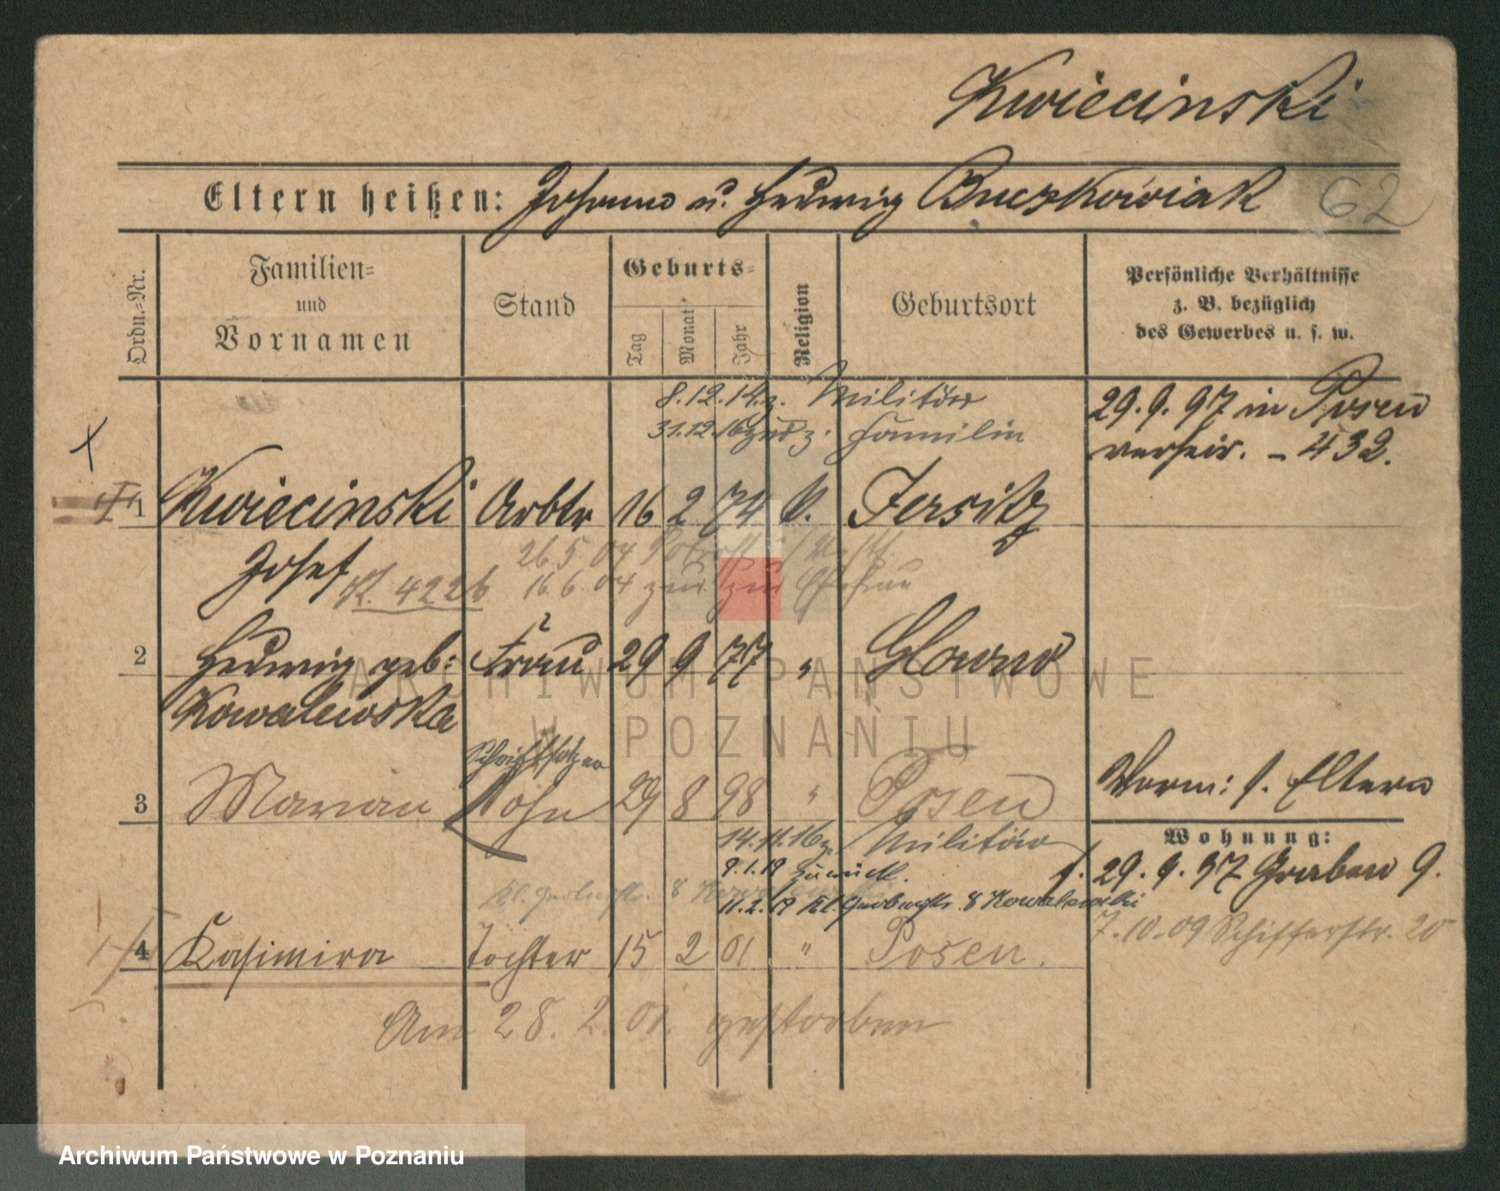 Kwiecinski
Eltern heißen: Johann u. Hedwig Buczkowiak 62
Ordn.-Nr.
Familien-
und
Vornamen
Stand
Geburts-
Tag
Monat
Jahr
Religion
Geburtsort
Persönliche Verhältnisse
z. B. bezüglich
des Gewerbes u. s. w.
8.12.14. z. Militär
31.12.16 z. Familie
29.9.97 in Posen
verheir. - 432.
1 Kwiecinski Arbtr 16 2 74 k. Jersitz
Josef K. 4226
26.5.04
16.6.04
2 Hedwig geb: Frau 29 9 77 " Glowno
Kowalewska
ARCHIWUM PAŃSTWOWE
W POZNANIU
Schriftsetzer
3 Marian Sohn 29 8 98 " Posen
Vorm: s. Eltern
Wohnung:
14.11.16 z. Militär
9.1.19 zurück.
11.2.19 Kl. Gerberstr. 8 Kowalewski
29.9.97 Graben 9.
7.10.09 Schifferstr. 20
4 Kasimira Tochter 15 2 01 " Posen.
Am 28.2.01. gestorben
Archiwum Państwowe w Poznaniu